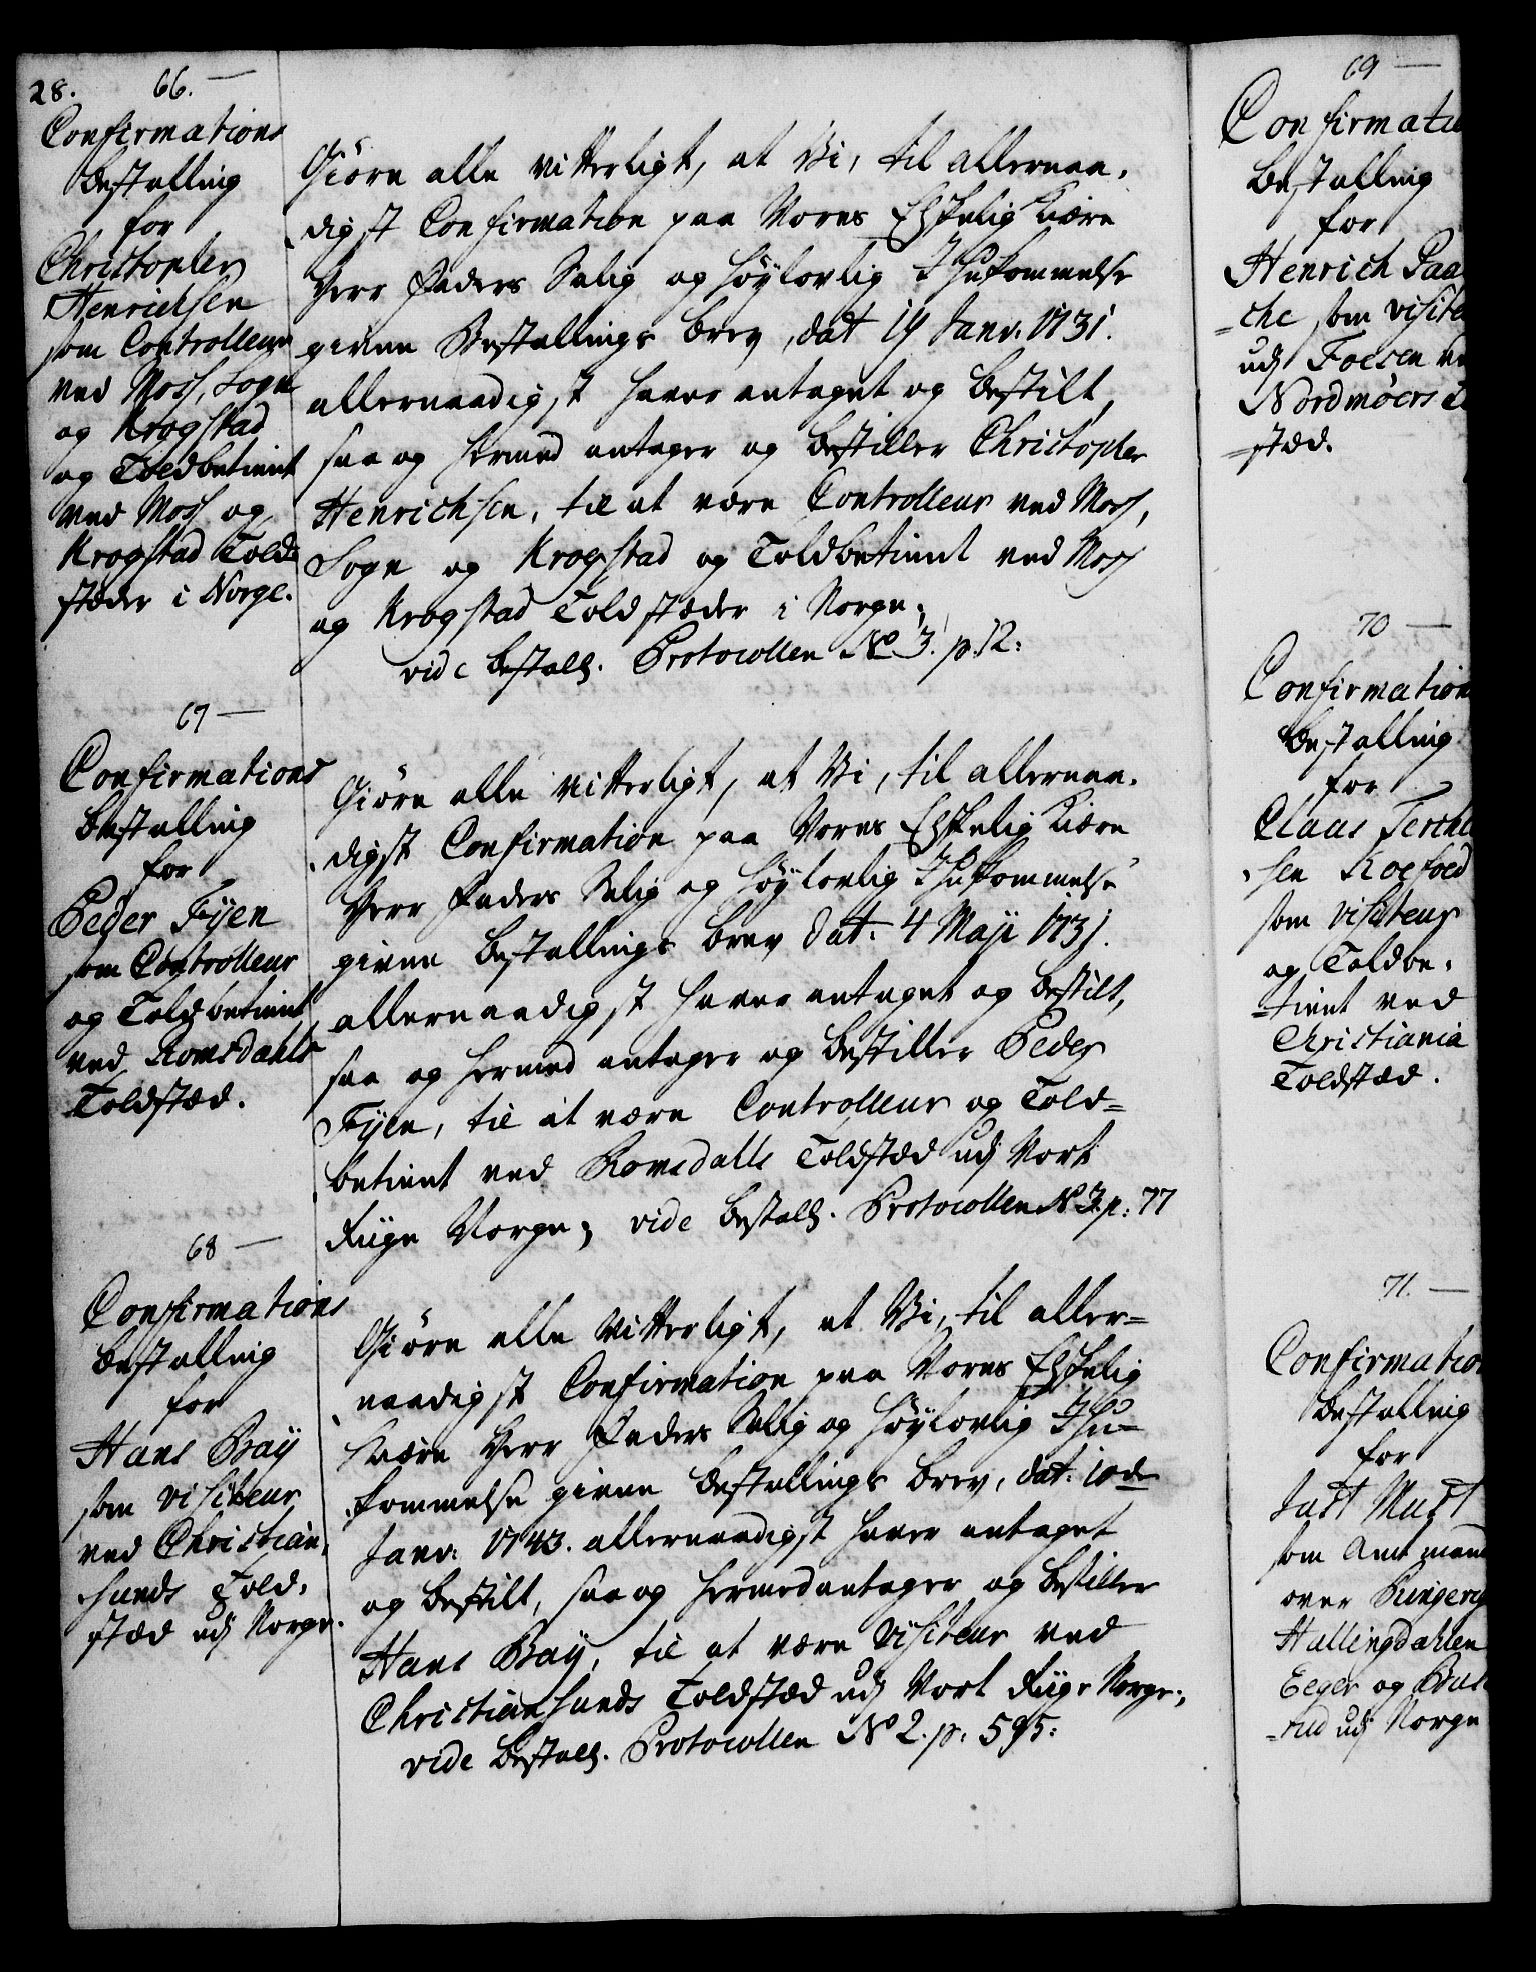 28.
66.
Confirmations
Bestalling
for
Christopher
Henrichsen
som Controlleur
ved Moss, Sogn
og Krogstad
og Toldbetient
ved Moss og
Krogstad Told-
stæder i Norge.
Giöre alle vitterligt, at Vi, til allernaa-
digst Confirmation paa Vores Elskelig Kiære
Herr Faders Salig og Høylovlig Ihukommelse
givne Bestallings brev, dat 19 Janv: 1731.
allernaadigst haver antaget og bestilt,
saa og hermed antager og bestiller Christopher
Henrichsen, til at være Controlleur ved Moss,
Sogn og Krogstad og Toldbetient ved Moss
og Krogstad Toldstæder i Norge;
vide bestall. Protocollen No 3. p. 12:
67
Confirmations
Bestalling
for
Peder Fyen
som Controlleur
og Toldbetient
ved Romsdahls
Toldstæd.
Giöre alle vitterligt, at Vi, til allernaa-
digst Confirmation paa Vores Elskelig Kiære
Herr Faders Salig og Høylovlig Ihukommelse
givne bestallings brev dat: 4 Maji 1731.
allernaadigst haver antaget og bestilt,
saa og hermed antager og bestiller Peder
Fyen, til at være Controlleur og Told-
betient ved Romsdalls Toldstæd udj Vort
Riige Norge; vide bestall. Protocollen No 3. p: 77
68
Confirmations
Bestalling
for
Hans Bay
som visiteur
ved Christian-
sunds Told-
stæd udj Norge.
Giöre alle vitterligt, at Vi, til aller-
naadigst Confirmation paa Vores Elskelig
Kiære Herr Faders Salig og Høylovlig Ihu-
kommelse givne bestallings brev, dat: 10de
Janv: 1743. allernaadigst haver antaget
og bestilt, saa og hermed antager og bestiller
Hans Bay, til at være Visiteur ved
Christiansunds Toldstæd udj Vort Riige Norge;
vide bestall. Protocollen No 2. p: 595:
69
Confirmatio
Bestalling
for
Henrich Paa
-che som visite
udj Foesen
Nordmöers
-stæd.
70
Confirmation
Bestalling
for
Claus
-sen Koefoed
som visiteur
og Toldbe-
-tient ved
Christiania
Toldstæd.
71.
Confirmation
Bestalling
for
Just Must
som Amtmand
over Ringerig
Hallingdahlen
Eeger og Busk
-rud udj Norge